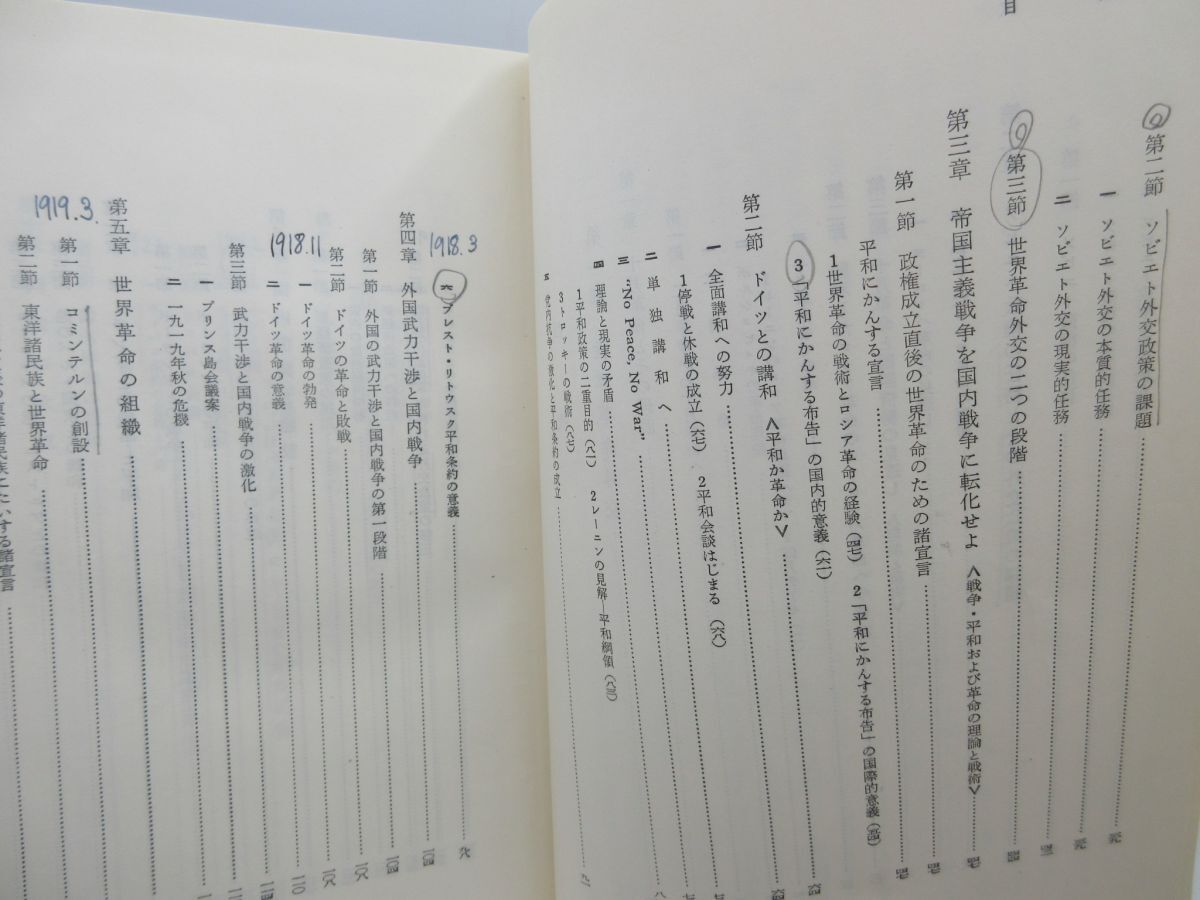 目
第二節 ソビエト外交政策の課題
一 ソビエト外交の本質的任務
二 ソビエト外交の現実的任務
第三節 世界革命外交の二つの段階
第三章 帝国主義戦争を国内戦争に転化せよ <戦争・平和および革命の理論と戦術>
第一節 政権成立直後の世界革命のための諸宣言
平和にかんする宣言
1 世界革命の戦術とロシア革命の経験(四七) 2 「平和にかんする布告」の国際的意義(五四)
3 「平和にかんする布告」の国内的意義(六一)
第二節 ドイツとの講和 <平和か革命か>
一 全面講和への努力
1 停戦と休戦の成立(六七) 2 平和会談はじまる(六八)
二 単独講和へ
三 "No Peace, No War"
四 理論と現実の矛盾
1 平和政策の二重目的(八一) 2 レーニンの見解—平和綱領(八三)
3 トロッキーの戦術(八七)
五 党内抗争の激化と平和条約の成立 九一
1918.3
六 ブレスト・リトウスク平和条約の意義 九八
第四章 外国武力干渉と国内戦争 一〇四
第一節 外国の武力干渉と国内戦争の第一段階 一〇四
第二節 ドイツの革命と敗戦 一〇八
1918.11
一 ドイツ革命の勃発 一〇八
二 ドイツ革命の意義 一一〇
第三節 武力干渉と国内戦争の激化 一一四
一 プリンス島会議案
二 一九一九年秋の危機
第五章 世界革命の組織
1919.3.
第一節 コミンテルンの創設
第二節 東洋諸民族と世界革命